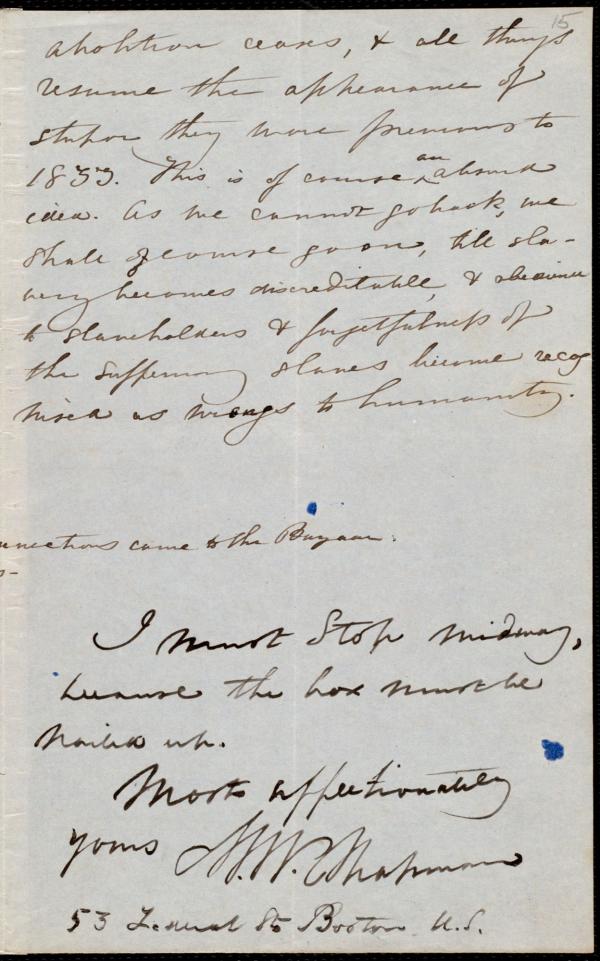 15
abolition ceases, & all things
resume the appearance of
stupor they wore previous to
1833. This is of course an absurd
idea. As we cannot go back, we
shall of course go on, till sla-
very becomes discreditable, & obedience
to slaveholders & forgetfulness of
the suffering slaves become recog
nised as wrongs to humanity.
nnections came to the Bazaar.
s-
I must stop midway,
because the box must be
nailed up.
Most affectionately
yours M. W. Chapman
53 Federal St Boston U.S.